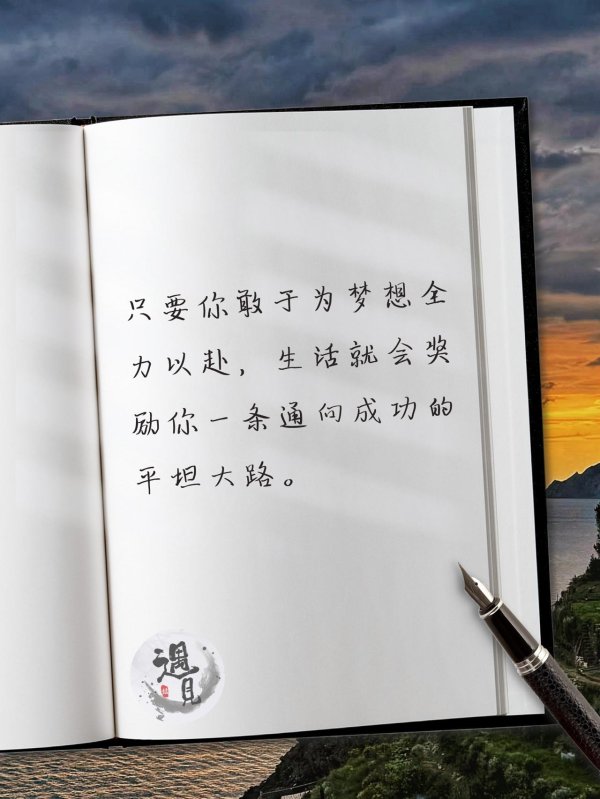 只要你敢于为梦想全
力以赴，生活就会奖
励你一条通向成功的
平坦大路。
遇見